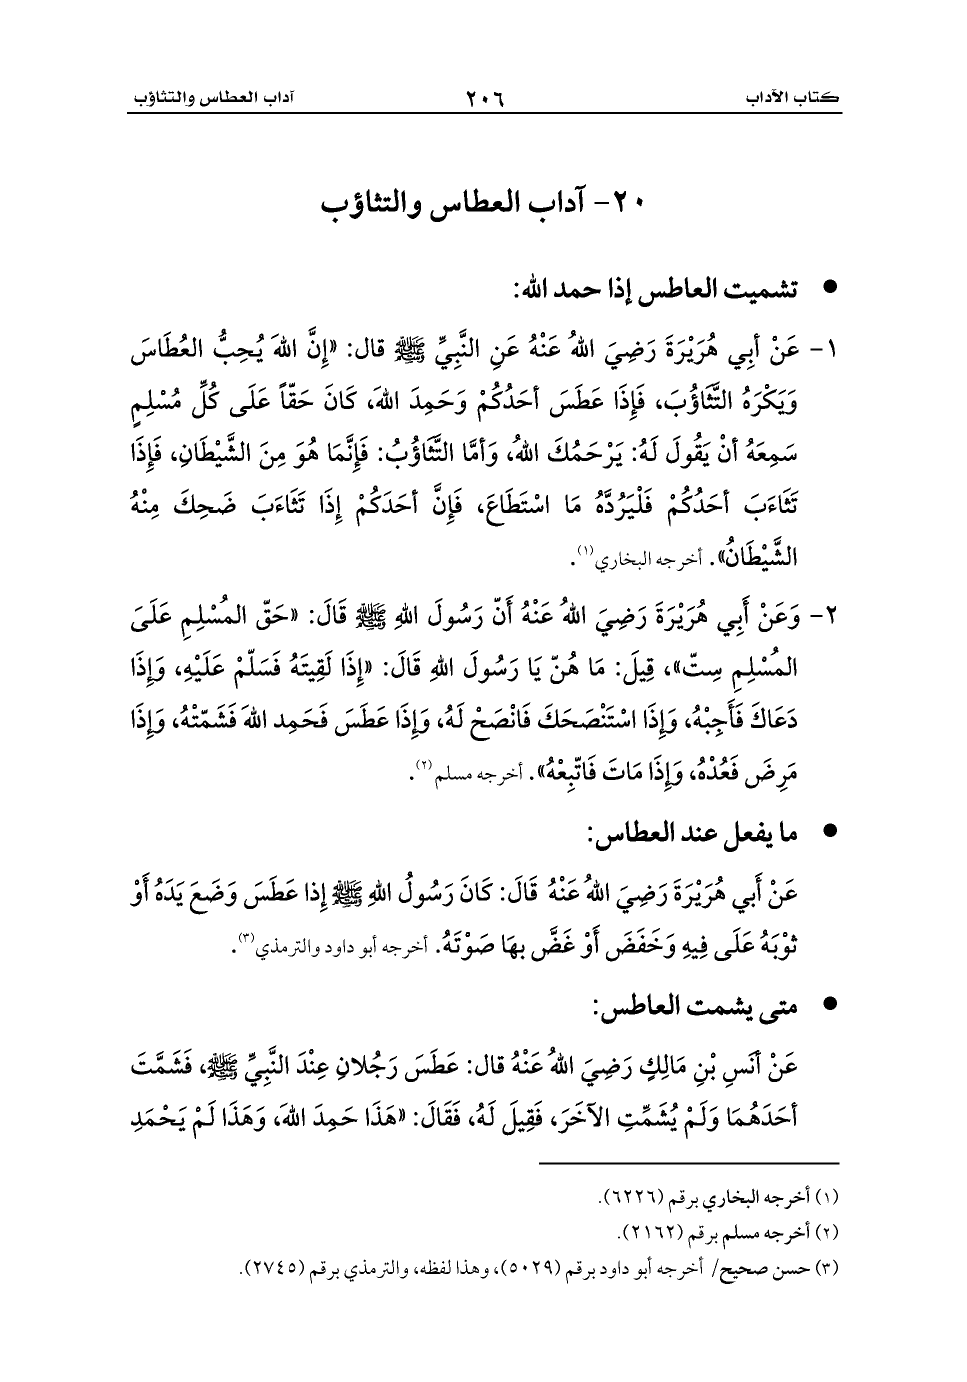 كتاب الآداب ٢٠٦ آداب العطاس والتثاؤب
٢٠- آداب العطاس والتثاؤب
● تشميت العاطس إذا حمد الله:
١- عَنْ أبِي هُرَيْرَةَ رَضِيَ اللهُ عَنْهُ عَنِ النَّبِيِّ ﷺ قال: «إنَّ اللهَ يُحِبُّ العُطَاسَ
وَيَكْرَهُ التَّثَاؤُبَ، فَإذَا عَطَسَ أحَدُكُمْ وَحَمِدَ اللهَ، كَانَ حَقّاً عَلَى كُلِّ مُسْلِمٍ
سَمِعَهُ أنْ يَقُولَ لَهُ: يَرْحَمُكَ اللهُ، وَأمَّا التَّثَاؤُبُ: فَإنَّمَا هُوَ مِنَ الشَّيْطَانِ، فَإذَا
تَثَاءَبَ أحَدُكُمْ فَلْيَرُدَّهُ مَا اسْتَطَاعَ، فَإنَّ أحَدَكُمْ إذَا تَثَاءَبَ ضَحِكَ مِنْهُ
الشَّيْطَانُ». أخرجه البخاري(١).
٢- وَعَنْ أَبِي هُرَيْرَةَ رَضِيَ اللهُ عَنْهُ أَنّ رَسُولَ اللهِ ﷺ قَالَ: «حَقّ المُسْلِمِ عَلَىَ
المُسْلِمِ سِتّ»، قِيلَ: مَا هُنّ يَا رَسُولَ اللهِ قَالَ: «إِذَا لَقِيتَهُ فَسَلّمْ عَلَيْهِ، وَإِذَا
دَعَاكَ فَأَجِبْهُ، وَإِذَا اسْتَنْصَحَكَ فَانْصَحْ لَهُ، وَإِذَا عَطَسَ فَحَمِد اللهَ فَشَمّتْهُ، وَإِذَا
مَرِضَ فَعُدْهُ، وَإِذَا مَاتَ فَاتّبِعْهُ». أخرجه مسلم(٢).
● ما يفعل عند العطاس:
عَنْ أَبي هُرَيْرَةَ رَضِيَ اللهُ عَنْهُ قَالَ: كَانَ رَسُولُ اللهِ ﷺ إذا عَطَسَ وَضَعَ يَدَهُ أَوْ
ثوْبَهُ عَلَى فِيهِ وَخَفَضَ أَوْ غَضَّ بهَا صَوْتَهُ. أخرجه أبو داود والترمذي(٣).
● متى يشمت العاطس:
عَنْ أنَسِ بْنِ مَالِكٍ رَضِيَ اللهُ عَنْهُ قال: عَطَسَ رَجُلانِ عِنْدَ النَّبِيِّ ﷺ، فَشَمَّتَ
أحَدَهُمَا وَلَمْ يُشَمِّتِ الآخَرَ، فَقِيلَ لَهُ، فَقَالَ: «هَذَا حَمِدَ اللهَ، وَهَذَا لَمْ يَحْمَدِ
(١) أخرجه البخاري برقم (٦٢٢٦).
(٢) أخرجه مسلم برقم (٢١٦٢).
(٣) حسن صحيح/ أخرجه أبو داود برقم (٥٠٢٩)، وهذا لفظه، والترمذي برقم (٢٧٤٥).